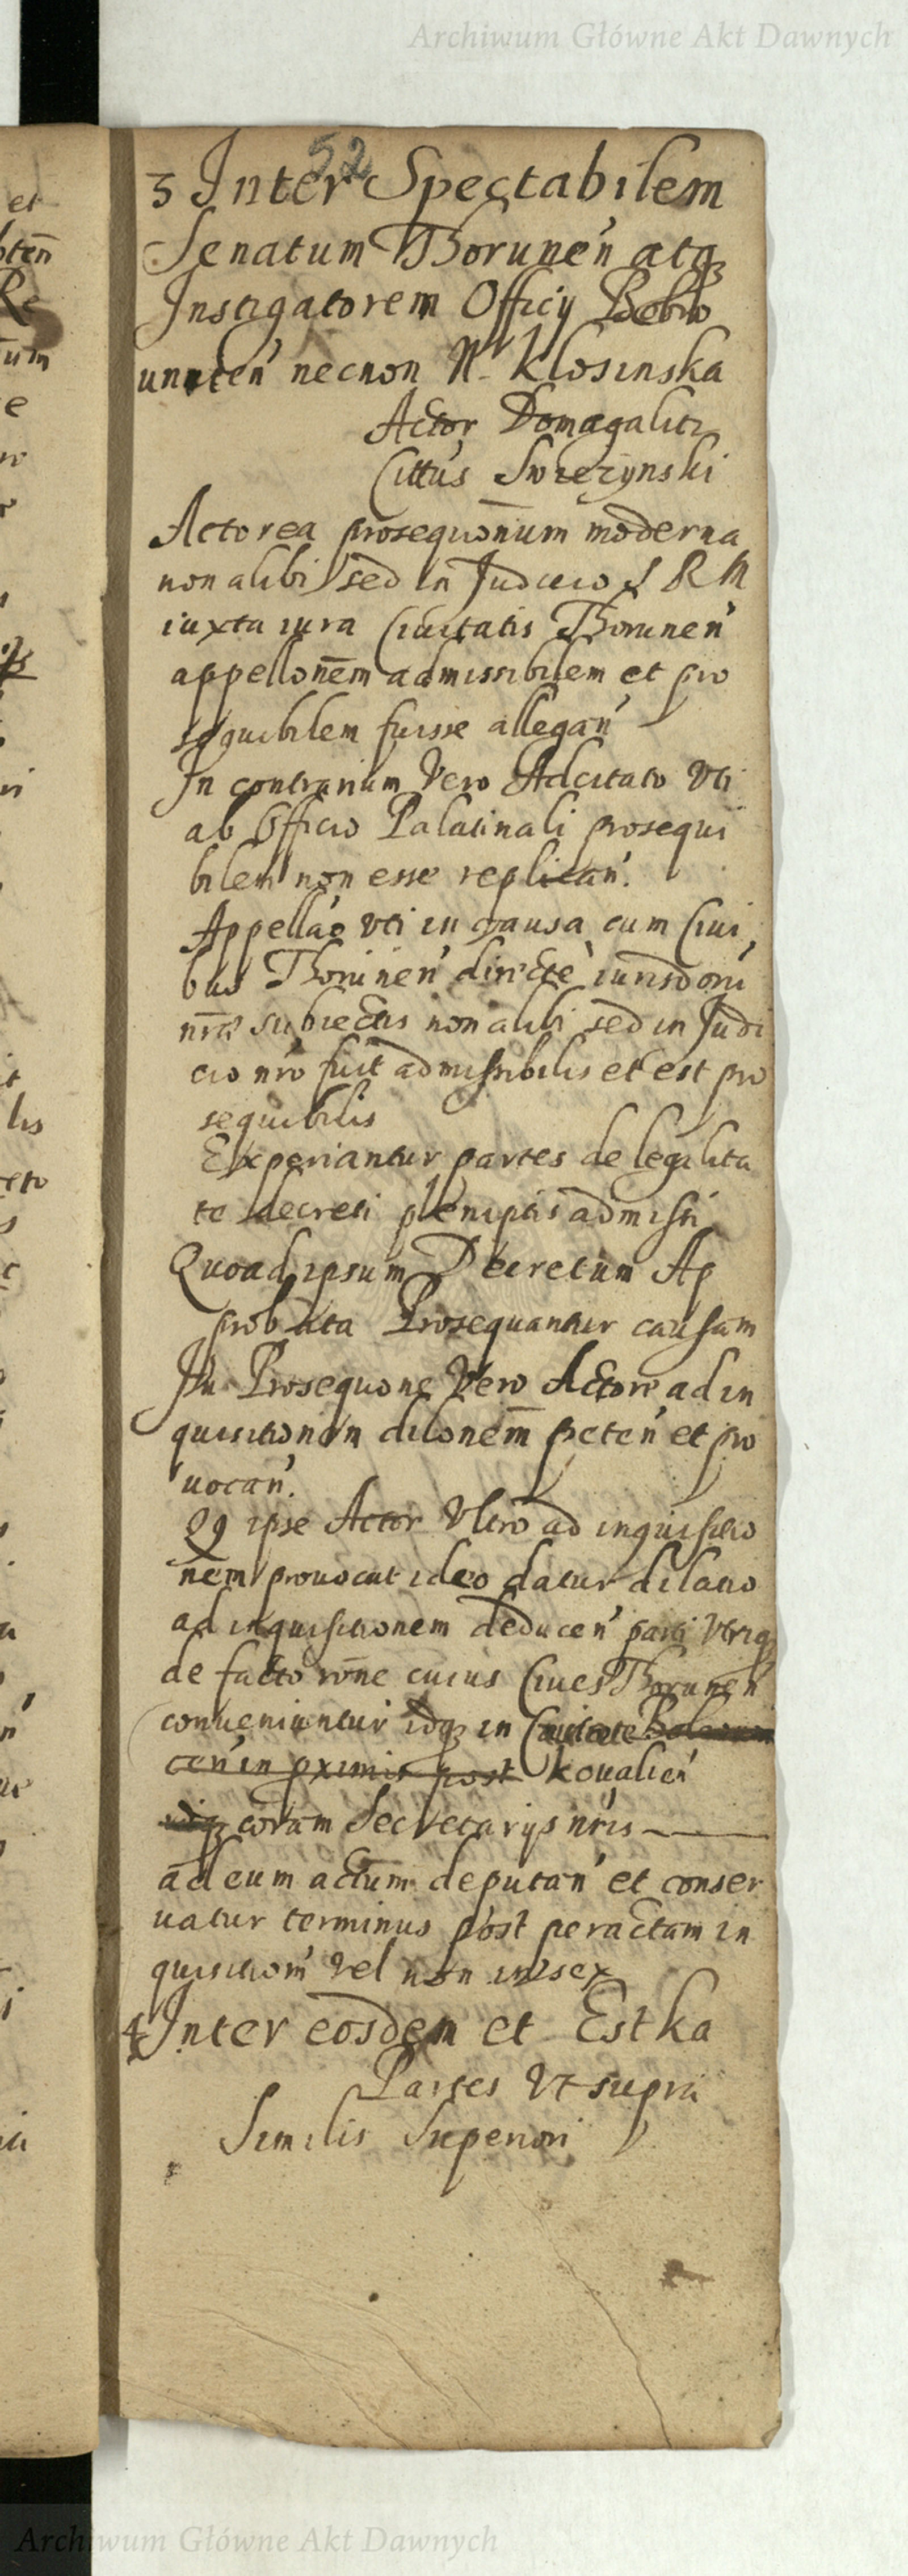 Archiwum Główne Akt Dawnych
52
3 Inter Spectabilem
Senatum Thorunen̄ atqȝ
Instigatorem Officij
necnon N. Klosinska
Actor Domagalicz
Cittus Swrezynski
Actorea prosequōnum moderna
non alibi sed in Judicio S R M
iuxta iura Ciuitatis Thorunen̄
appellonem̄ admissibilem et pro
sequibilem fuisse allegan̄
In contrarium Vero Adcitato Vti
ab Officio Palatinali prosequi
bilem non esse replican̄.
Appellao Vti in causa cum Ciui
bus Thorunen̄ directe iurisdoni
nrae subiectis non alibi sed in Judi
cio nro fuit admissibilis et est pro
sequibilis
Experiantur partes de legalita
te decreti plenipttis admissi
Quoad ipsum Decretum Ap
probata Prosequantur causam
In Prosequone Vero Actore ad in
quisitionem dilonem̄ peten̄ et pro
uocan̄.
Qq ipse Actor Vltro ad inquisitio
nem prouocat ideo datur dilatio
ad inquisitionem deducen̄ parti Vtriqȝ
de facto rōne cuius Ciues Thorunen̄
conueniuntur idqȝ in Ciuitate
cen̄ in pximis post Koualien̄
coram Secretarijs nris
ad eum actum deputan̄ et conser
uatur terminus post peractam in
quisitiom̄ Vel non in sex
4 Inter eosdem et Estka
Partes Vt supra
Similis Superiori
et
um
e
lis
Archiwum Główne Akt Dawnych